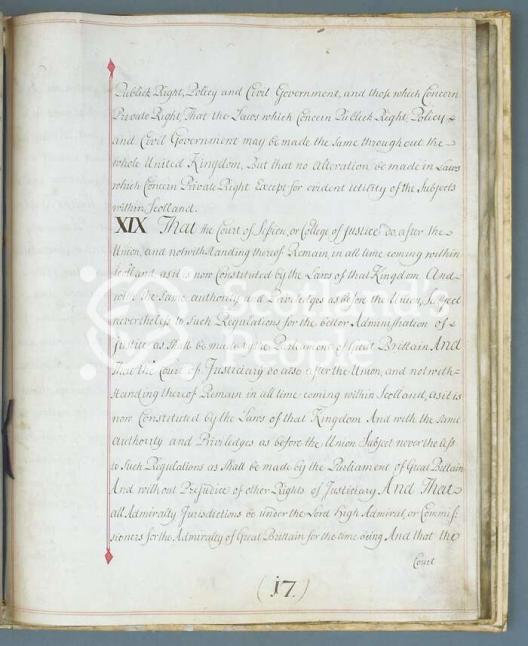 Publick Right, Policy and Civil Government, and those which Concern
Private Right, That the Laws which Concern Publick Right Policy
and Civil Government may be made the same throughout the
whole United Kingdom, But that no alteration be made in Laws
which Concern Private Right Except for evident utility of the Subjects
within Scotland.
XIX That the Court of Session, or College of Justice do after the
Union, and notwithstanding thereof Remain, in all time coming within
Scotland as it is now Constituted by the Laws of that Kingdom And
with the same authority and Priviledges as before the Union, Subject
nevertheless to such Regulations for the better Administration of
Justice as shall be made by the Parliament of Great Brittain And
that the Court of Justiciary do also after the Union, and notwith=
standing thereof Remain in all time coming within Scotland, as it is
now Constituted by the Laws of that Kingdom And with the same
authority and Priviledges as before the Union Subject nevertheless
to such Regulations as shall be made by the Parliament of Great Britain
And without Prejudice of other Rights of Justiciary And That
all Admiralty Jurisdictions be under the Lord High Admiral, or Commis=
sioners for the Admiralty of Great Brittain for the time being And that the
Court
(17.)
Scotland's
People